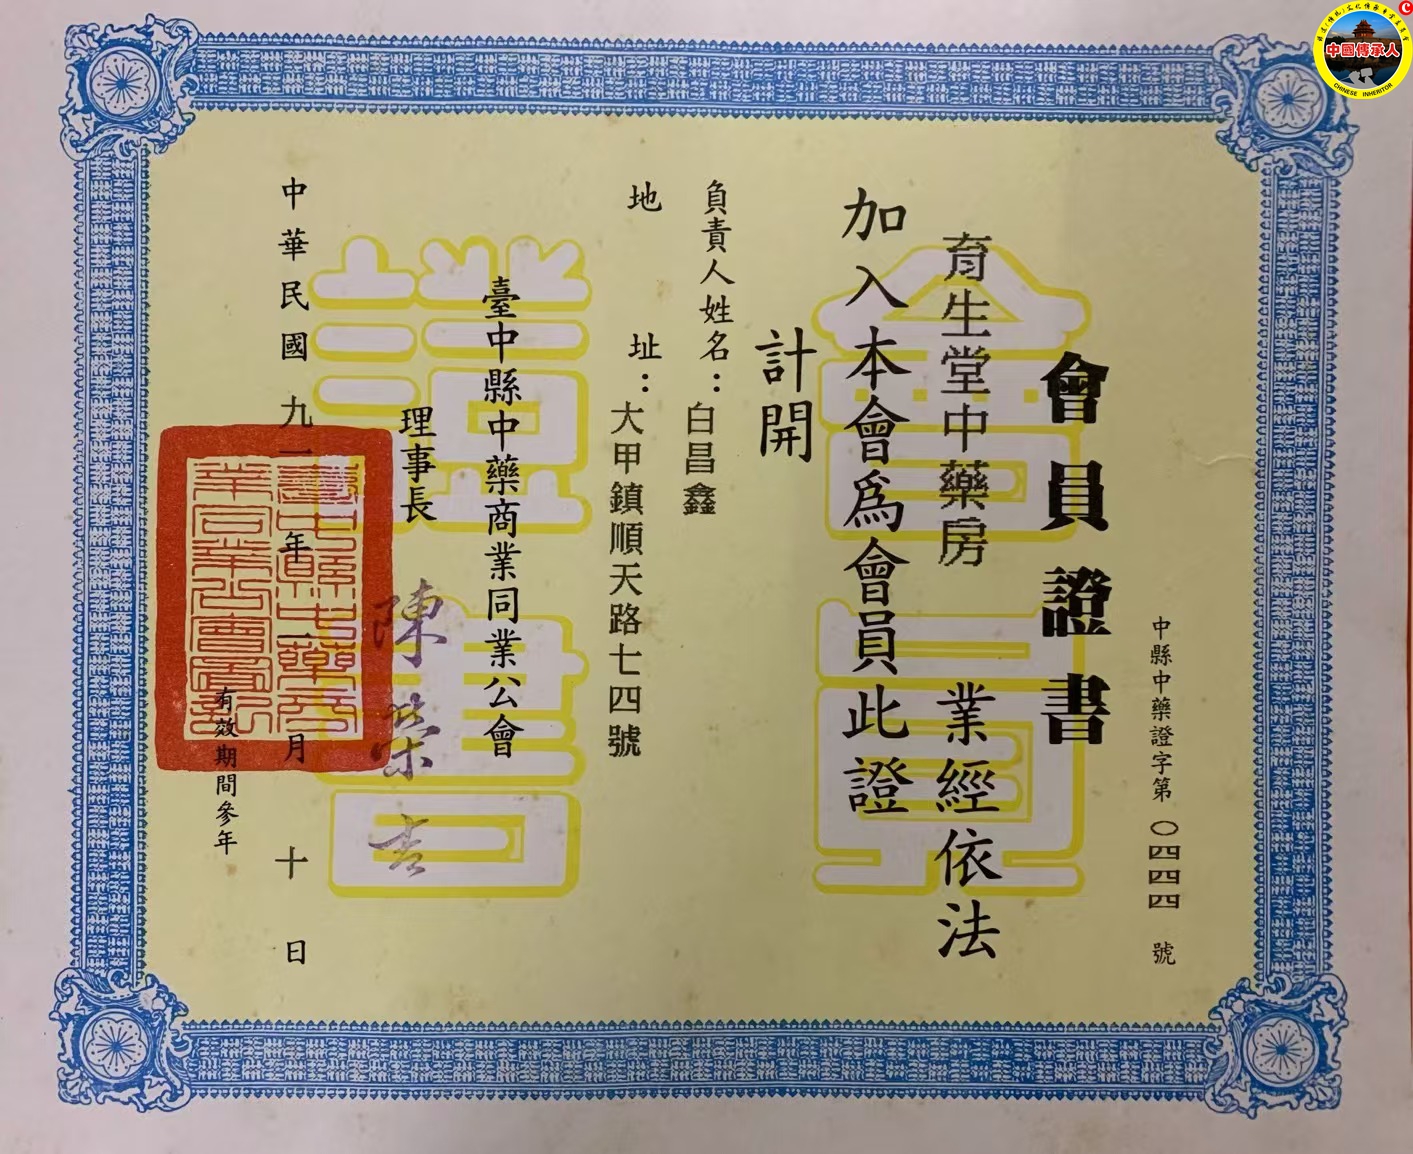 中縣中藥證字第〇四四四號
會員證書
育生堂中藥房 業經依法
加入本會為會員此證
計開
負責人姓名：白昌鑫
地址：大甲鎮順天路七四號
臺中縣中藥商業同業公會
理事長 陳榮吉
中華民國九一年一月十日
有效期間參年
臺中縣中藥商
業同業公會圖記
會員
證書
中國傳承人
CHINESE INHERITOR